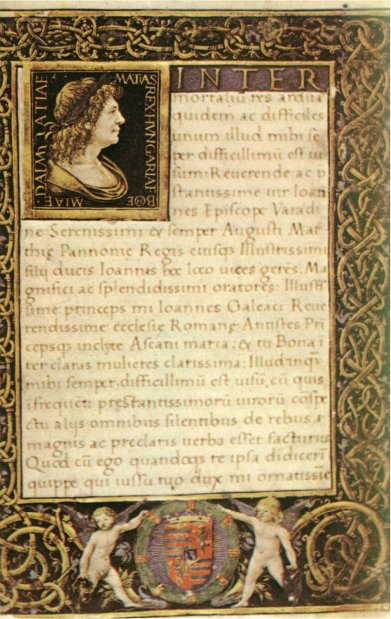 MATIAS REX HVNGARIAE BOEMIAE DALMATIAE
INTER
mortaliũ res ardua
quidem ac difficiles
unum illud mihi se
per difficillimũ est ui
sum: Reuerende ac p
stantissime uir Ioan
nes Episcope Varadi
ne Serenissimi et semper Augusti Mat
thię Pannonię Regis eiusqȝ Illustrissimi
filij ducis Ioannis hoc loco uices gerẽs: Ma
gnifici ac splendidissimi oratores: Illuss
sime princeps mi Ioannes Galeaci Reue
rendissime ecclesie Romanę Antistes Pri
cepsqȝ inclyte Ascani maria: et tu Bona i
ter claras mulieres clarissima: Illud inqȝ
mihi semper difficillimũ est uisũ, cũ quis
i frequẽti prestantissimorũ uirorũ cõspe
ctu alijs omnibus silentibus de rebus
magnis ac preclaris uerba esset facturus
Quod cũ ego quandoqȝ re ipsa didicerĩ
quippe qui iussu tuo dux mi ornatissie